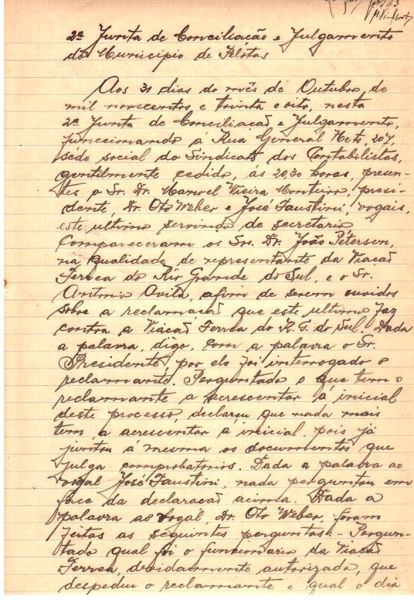 2ª Junta de Conciliação e Julgamento
do Municipio de Pelotas
Aos 31 dias do mês de Outubro, de
mil novecentos e trinta e oito, nesta
2ª Junta de Conciliação e Julgamento,
funccionando á Rua General Neto, 207,
séde social do Sindicato dos Contabilistas,
gentilmente cedido, ás 20,30 horas, presen-
tes o Sr. Dr. Manoel Vieira Monteiro, presi-
dente, Dr. Oto Weber e José Faustini, vogais,
este ultimo servindo de secretario
compareceram os Srs. Dr. João Petersen,
na qualidade de representante da Viação
Ferrea do Rio Grande do Sul, e o Sr.
Antonio Avila, afim de serem ouvidos
sobre a reclamação que este ultimo faz
contra a Viação Ferrea do R. G. do Sul. Dada
a palavra, digo, com a palavra o Sr.
Presidente, por ele foi interrogado o
reclamante. Perguntado o que tem o
reclamante a acrescentar á inicial
deste processo, declarou que nada mais
tem a acrescentar á inicial, pois já
juntou á mesma os documentos que
julga comprobatorios. Dada a palavra ao
vogal José Faustini, nada perguntou em
face da declaração acima. Dada a
palavra ao vogal, Dr. Oto Weber, foram
feitas as seguintes perguntas: - Pergun-
tado qual foi o funcionario da Viação
Ferrea, devidamente autorizado, que
despediu o reclamante e qual o dia